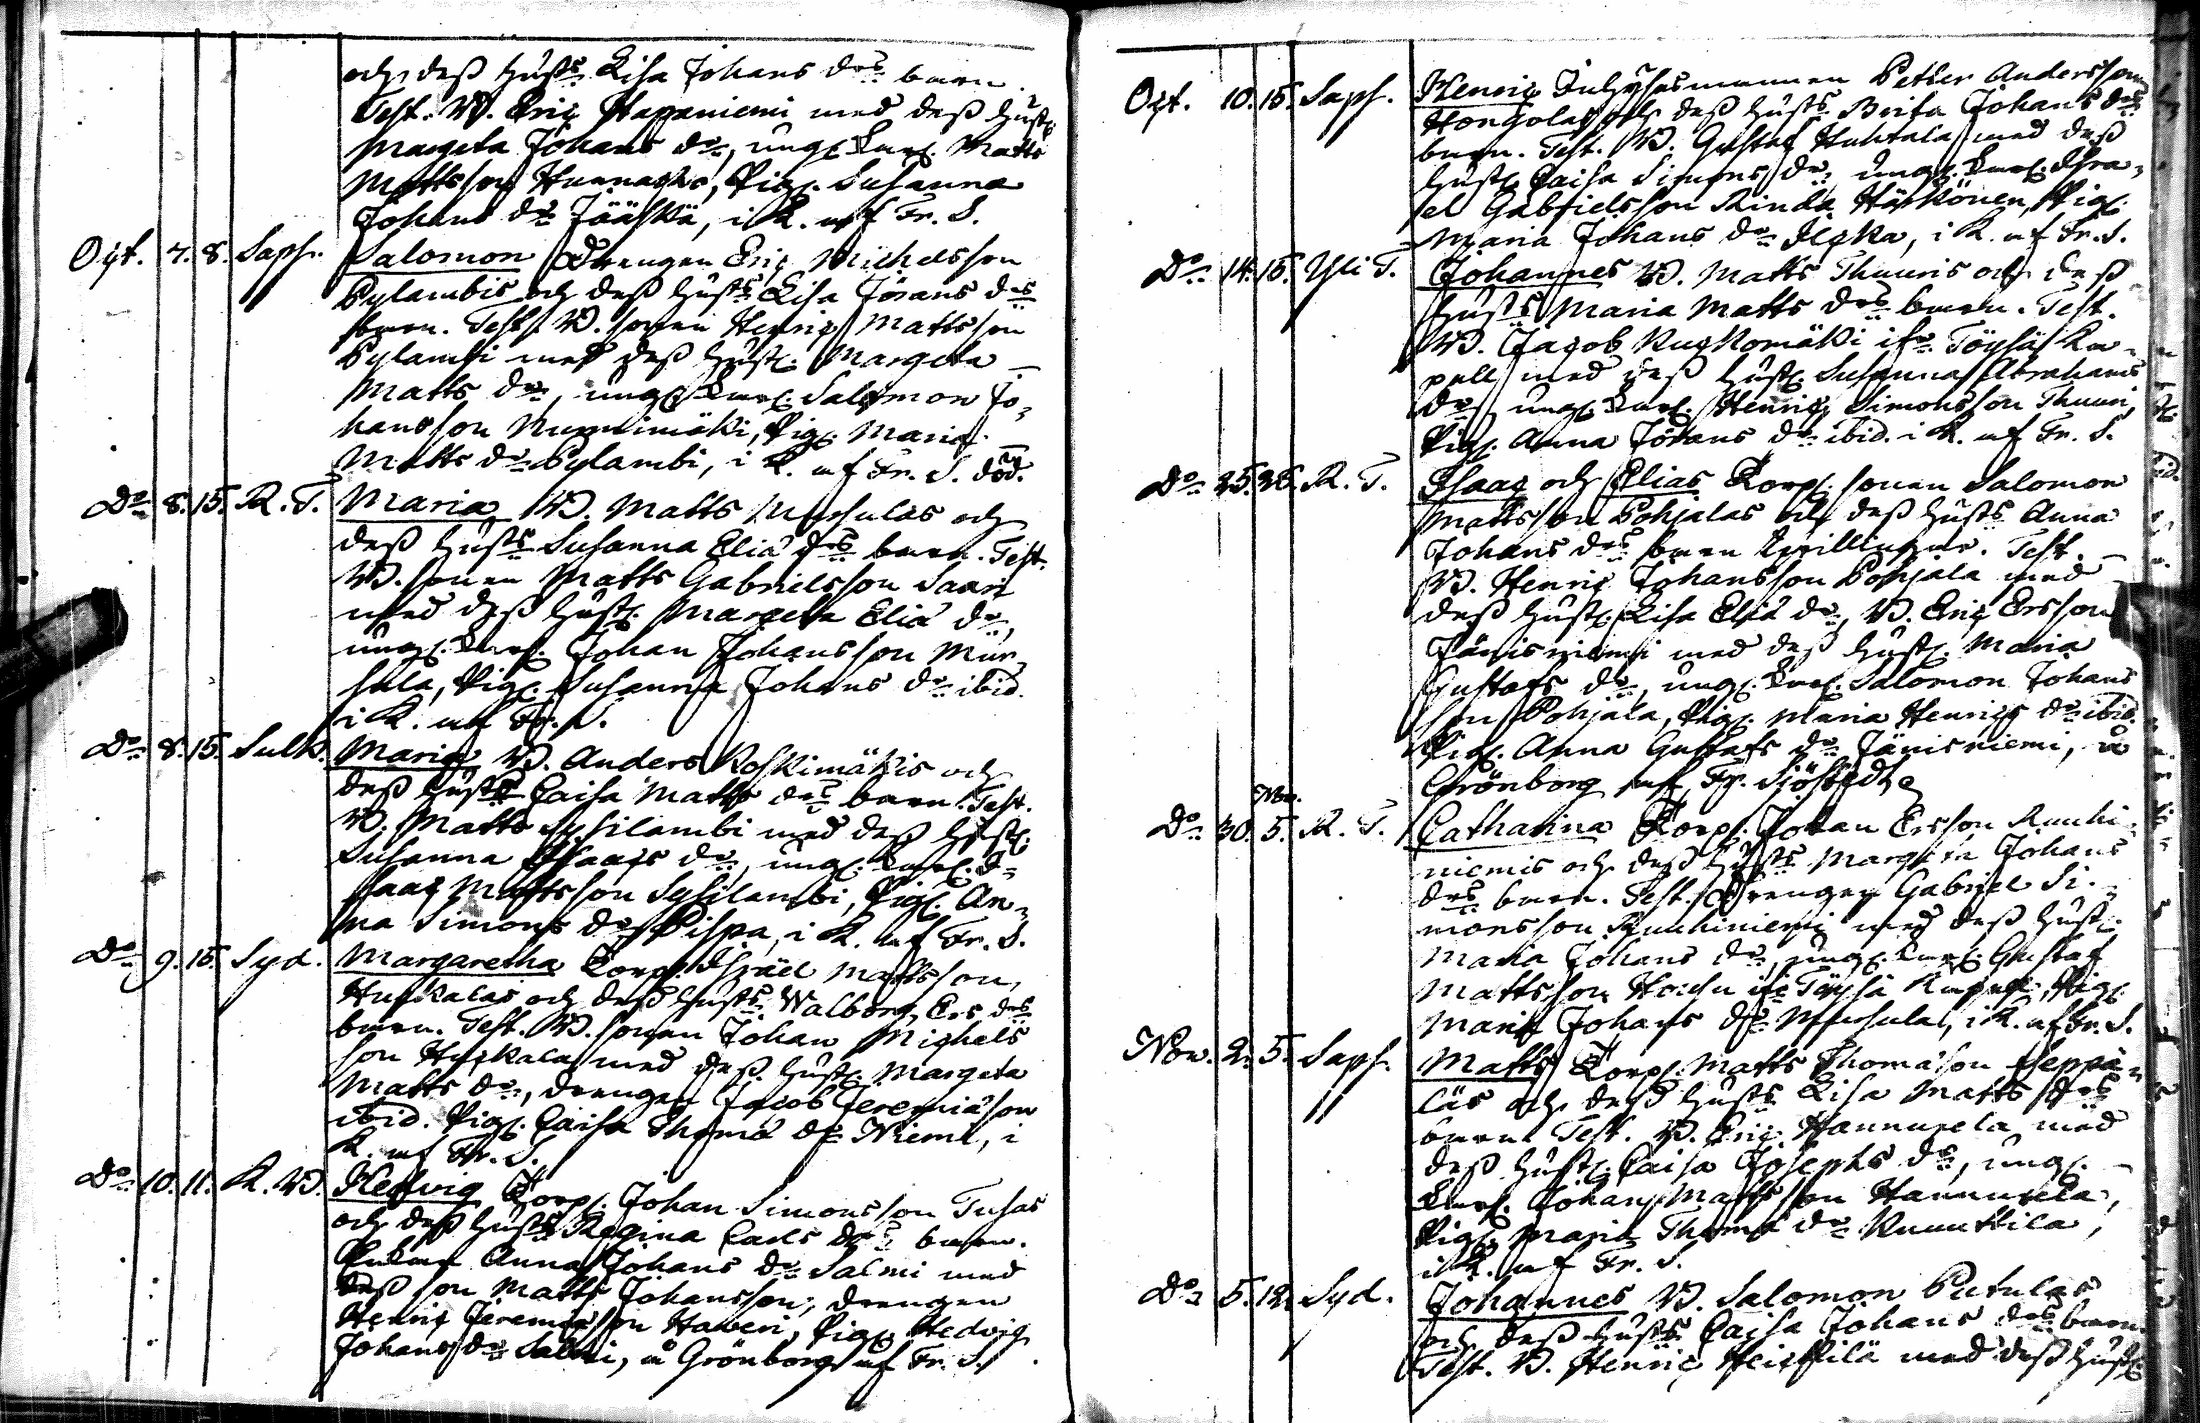 och dess hust:s Lisa Johans d:rs barn.
Test. B. Eric Hapaniemi med dess hust:
Margeta Johans d:r, ungk. Matts
Mattsson, Pig. Susanna
Johans d:r Jääskä, i K. af Fr. S.
Oct. 7. 8. Saph. Salomon Drengen Eric Michelsson
Pylambis och dess hust:s Lisa Jörans d:rs
barn. Test. B. sonen Henric Mattsson
Pylambi med dess hust. Margeta
Matts d:r, ungk. Salomon Jo-
hansson Nurmimäki, Pig. Maria
Matts d:r Pylambi, i K. af Fr. S. död.
D:o 8. 15. R. T. Maria B. Matts Mursulas och
dess hust:s Susanna Elia d:rs barn. Test.
B. sonen Matts Gabrielsson Saari
med dess hust. Margeta Elia d:r,
ungk. Johan Johansson Mur-
sula, Pig. Susanna Johans d:r ibid.
i K. af Fr. S.
D:o 8. 15. Sulk. Maria B. Anders Koskimäkis och
dess hust:s Caisa Matts d:rs barn. Test.
B. Matts Sysilambi med dess hust.
Susanna Isaacs d:r, ungk. I-
saac Mattsson Sysilambi, Pig. An-
na Simons d:r Pispa, i K. af Fr. S.
D:o 9. 15. Syd. Margaretha Torp. Israel Mattsson
Huskalas och dess hust:s Walborg Ers d:rs
barn. Test. B. sonen Johan Michels
son Huskala med dess hust. Margeta
Matts d:r, drengen Jacob Jeremiason
ibid. Pig. Caisa Thoma d:r Niemi, i
K. af Fr. S.
D:o 10. 11. K. B. Hedvig Torp. Johan Simonsson Tusas
och dess hust:s Regina Carls d:rs barn.
Enkan Anna Johans d:r Salmi med
dess son Matts Johansson, drengen
Henric Jeremiason Haveri, Pig. Hedvig
Johans d:r Salmi, å Grönborg af Fr. S.
Oct. 10. 15. Saph. Henric Inhysesmannen Petter Andersson
Hongolas och dess hust:s Brita Johans d:rs
barn. Test. B. Gustaf Huhtala med dess
hust. Caisa Simons d:r ungk. Isra-
el Gabrielsson Rinda Härkönen, Pig.
Maria Johans d:r, i K. af Fr. S.
D:o 14. 15. Yli T. Johannes B. Matts Thuuris och dess
hust:s Maria Matts d:rs barn. Test.
B. Jacob Ruckomäki ifr. Töysä Ka-
pell med dess hust. Susanna Abrahams
d:r, ungk. Henric Simonsson Thuuri,
Pig. Anna Jörans d:r ibid. i K. af Fr. S.
D:o 25. 26. R. T. Isaac och Elias Torp. sonen Salomon
Mattsson Pohjalas och dess hust:s Anna
Johans d:rs barn Tvillingar. Test.
B. Henric Johansson Pohjala med
dess hust. Lisa Elia d:r, B. Eric Ersson
Jänisniemi med dess hust. Maria
Gustafs d:r, ungk. Salomon Johans
son Pohjala, Pig. Maria Henrics d:r ibid.
Pig. Anna Gustafs d:r Jänisniemi, å
Grönborg af Fr. Sjöstedt
Nov.
D:o 30. 5. R. T. Catharina Torp. Johan Ersson Ruuhi-
niemis och dess hust:s Margeta Johans
d:rs barn. Test. Drengen Gabriel Si-
monsson Ruuhiniemi med dess hust.
Maria Johans d:r, ungk. Gustaf
Mattsson ifr. Töysä Kapell, Pig.
Maria Johans d:r Mursula, i K. af Fr. S.
Nov. 2. 5. Saph. Matts Torp. Matts Thomason Seppä-
läs och dess hust:s Lisa Matts d:rs
barn. Test. B. Eric Hannuxela med
dess hust. Caisa Josephs d:r, ungk.
Johan Mattsson Hannuxela,
Pig. Maria Thoma d:r Ruuttila,
i K. af Fr. S.
D:o 5. 12. Syd. Johannes B. Salomon Petulas
och dess hust:s Caisa Johans d:rs barn.
Test. B. Henric Heickilä med dess hust.